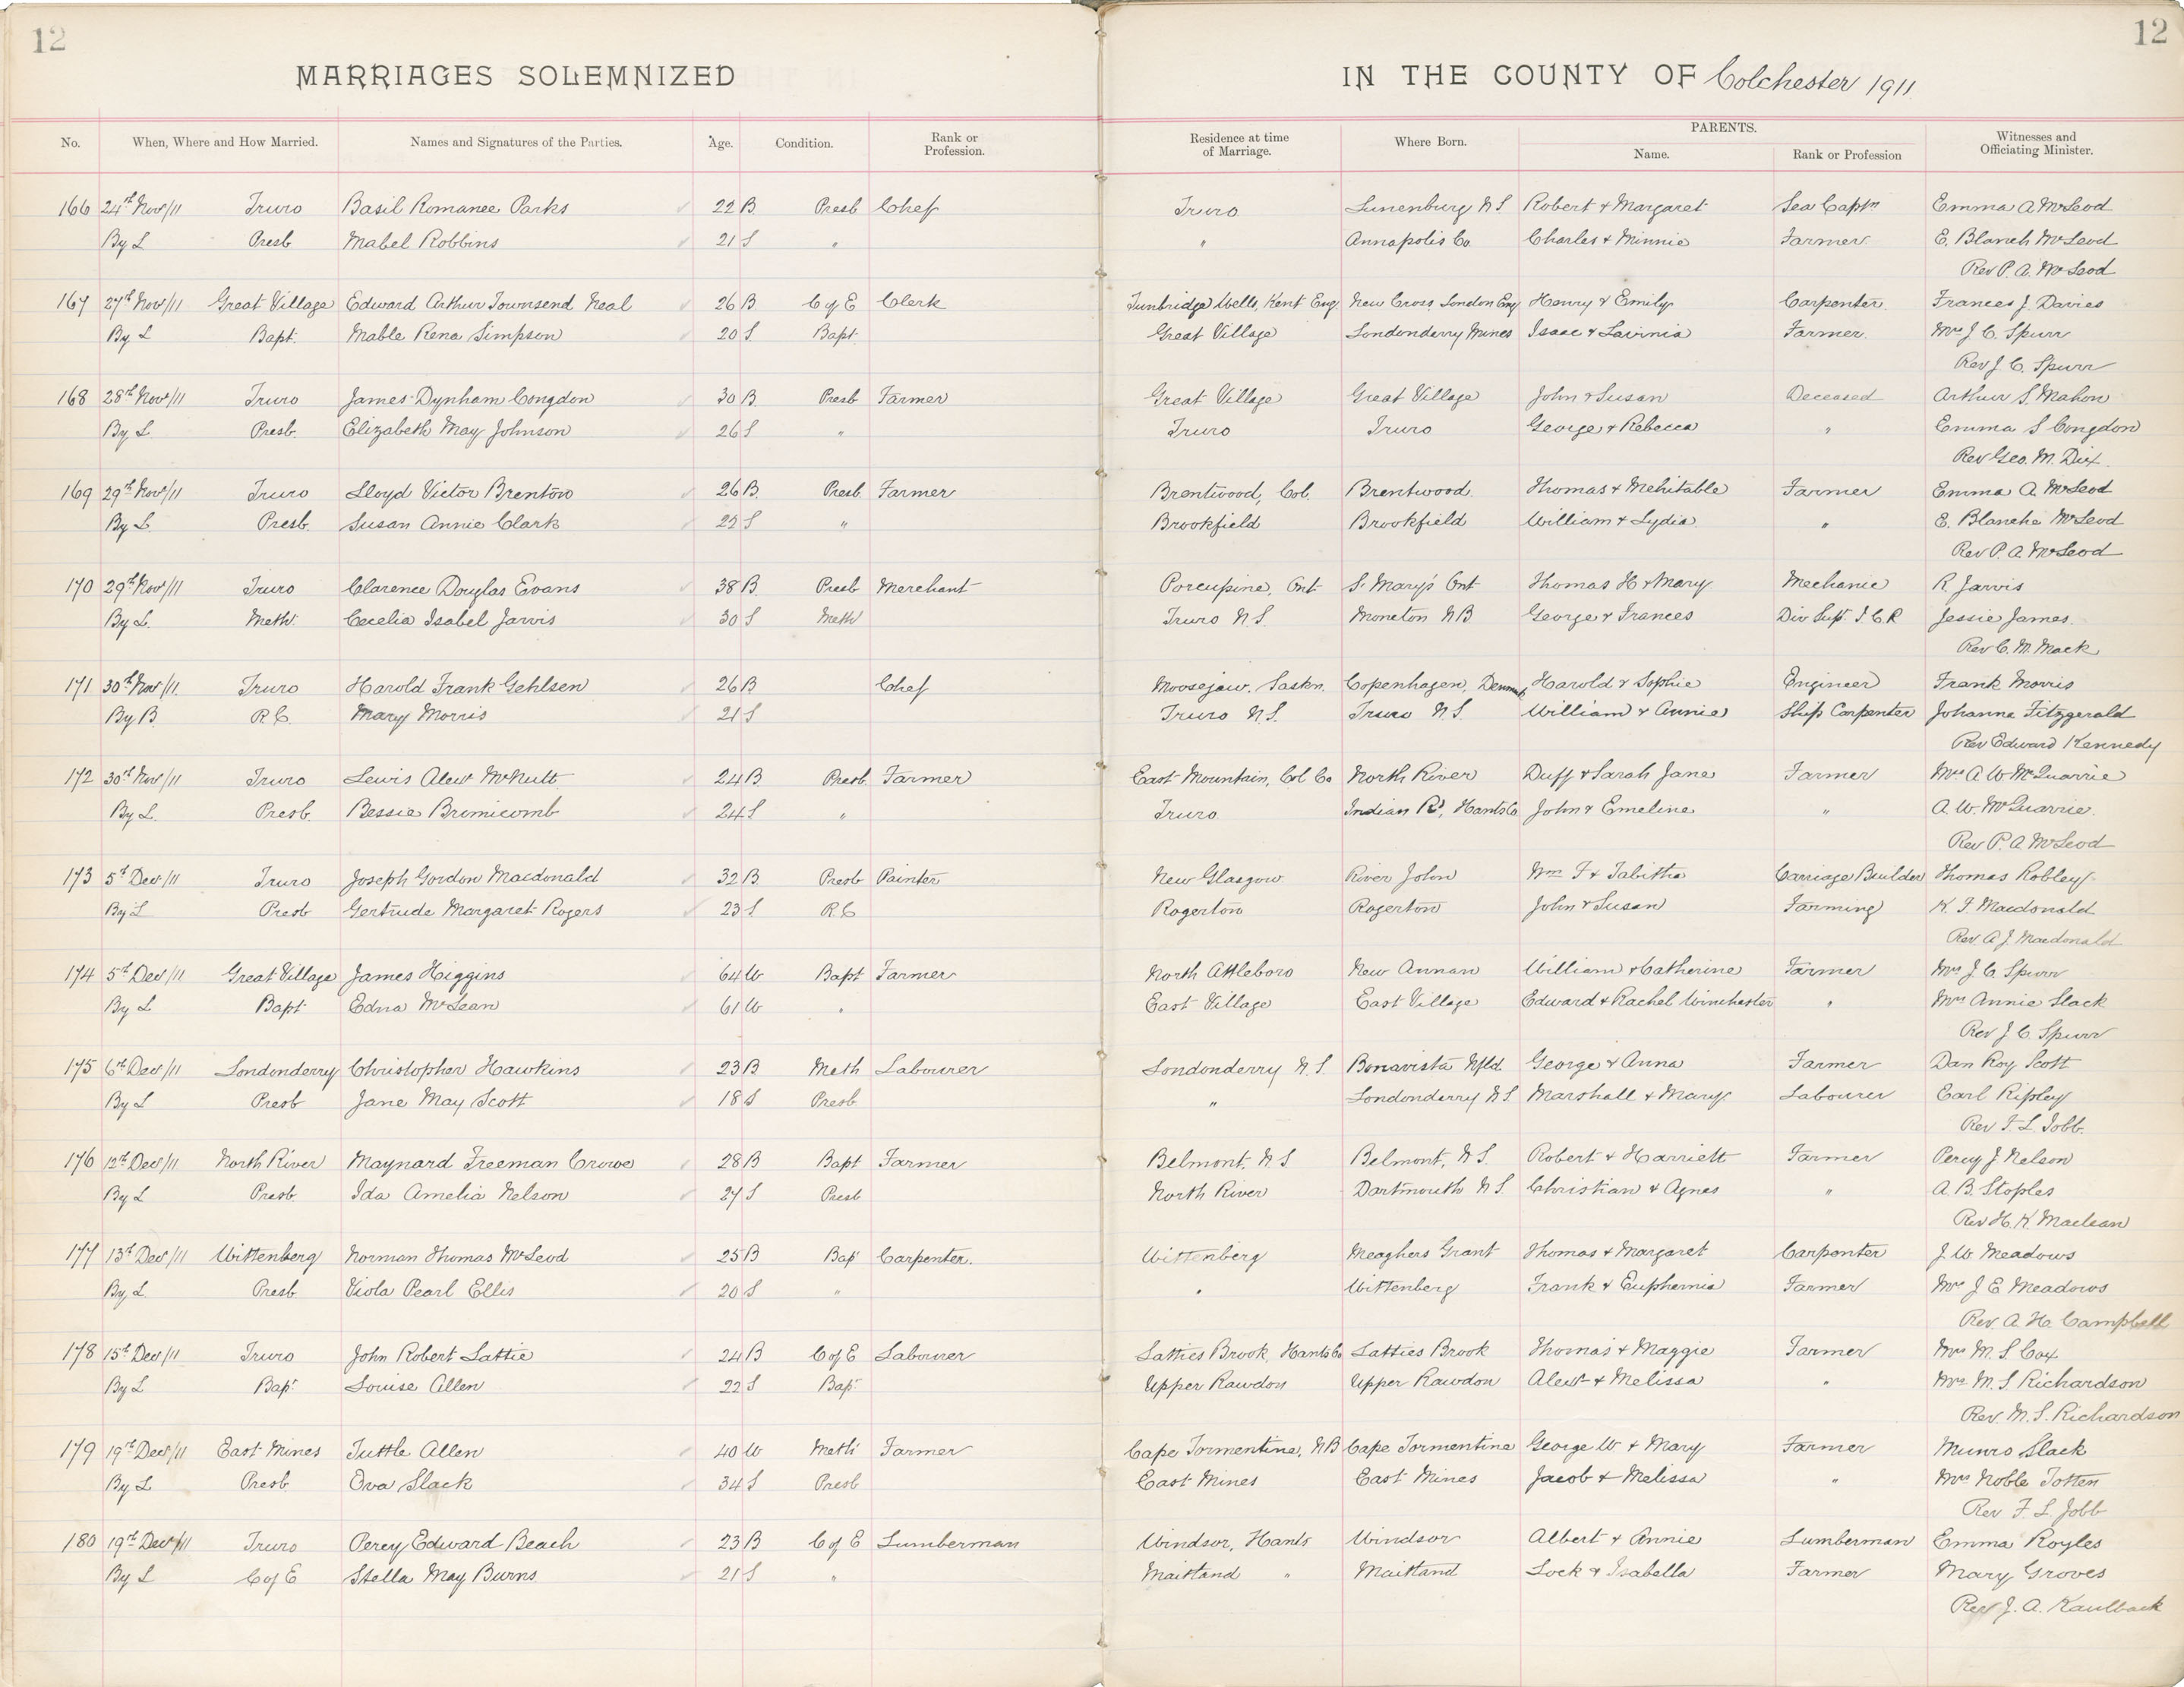 12 12
MARRIAGES SOLEMNIZED IN THE COUNTY OF Colchester 1911
PARENTS.
No. When, Where and How Married. Names and Signatures of the Parties. Age. Condition. Rank or Profession. Residence at time of Marriage. Where Born. Name. Rank or Profession Witnesses and Officiating Minister.
166 24th Nov/11 Truro Basil Romanee Parks 22 B Presb Chef Truro Lunenburg N S Robert & Margaret Sea Captn Emma A McLeod
By L Presb Mabel Robbins 21 S " " Annapolis Co Charles & Minnie Farmer E. Blanch McLeod
Rev P. A. McLeod
167 27th Nov/11 Great Village Edward Arthur Townsend Neal 26 B C of E Clerk Tunbridge Wells, Kent Eng. New Cross, London Eng Henry & Emily Carpenter Frances J. Davies
By L Bapt. Mable Rena Simpson 20 S Bapt. Great Village Londonderry Mines Isaac & Lavinia Farmer Mrs J. C. Spurr
Rev J. C. Spurr
168 28th Nov/11 Truro James Dynham Congdon 30 B. Presb Farmer Great Village Great Village John & Susan Deceased Arthur S. Mahon
By L Presb. Elizabeth May Johnson 26 S " Truro Truro George & Rebecca " Emma S Congdon
Rev Geo. M. Dix.
169 29th Nov/11 Truro Lloyd Victor Brenton 26 B. Presb. Farmer Brentwood, Col. Brentwood. Thomas & Mehitable Farmer Emma A. McLeod
By L. Presb. Susan Annie Clark 22 S " Brookfield Brookfield William & Lydia " E. Blanche McLeod
Rev P. A McLeod
170 29th Nov/11 Truro Clarence Douglas Evans 38 B. Presb Merchant Porcupine, Ont S. Mary's Ont Thomas H & Mary Mechanic R Jarvis
By L. Meth. Cecelia Isabel Jarvis 30 S Meth Truro N. S. Moncton N B George & Frances Div Supt. I. C. R Jessie James.
Rev C. M. Mack
171 30th Nov/11. Truro Harold Frank Gehlsen 26 B Chef Moosejaw, Saskn. Copenhagen, Denmark Harold & Sophie Engineer Frank Morris
By B. R C. Mary Morris 21 S Truro N. S. Truro N. S. William & Annie Ship Carpenter Johanna Fitzgerald
Rev Edward Kennedy
172 30th Nov/11 Truro Lewis Alexr McNutt 24 B. Presb. Farmer East Mountain, Col Co North River Duff & Sarah Jane Farmer Mrs A W McQuarrie
By L. Presb. Bessie Brimicomb 24 S " Truro. Indian Rd, Hants Co John & Emeline " A. W. McQuarrie.
Rev P. A McLeod
173 5th Dec/11 Truro Joseph Gordon Macdonald 32 B. Presb Painter New Glasgow River John Wm F & Tabitha Carriage Builder Thomas Robley
By L Presb Gertrude Margaret Rogers 23 S R. C Rogerton Rogerton John & Susan Farming K. F. Macdonald
Rev. A J. Macdonald
174 5th Dec/11 Great Village James Higgins 64 W Bapt Farmer North Attleboro New Annan William & Catherine Farmer Mrs J. C. Spurr
By L Bapt Edna McLean 61 W " East Village East Village Edward & Rachel Winchester " Mrs Annie Slack
Rev J. C. Spurr
175 6th Dec/11 Londonderry Christopher Hawkins 23 B Meth Labourer Londonderry N. S. Bonavista Nfld. George & Anna Farmer Dan Roy Scott
By L Presb Jane May Scott 18 S Presb " Londonderry N S Marshall & Mary Labourer Earl Ripley
Rev F. L. Jobb.
176 12th Dec/11 North River Maynard Freeman Crowe 28 B Bapt Farmer Belmont, N S Belmont, N S. Robert & Harriett Farmer Percy J Nelson
By L Presb Ida Amelia Nelson 27 S Presb North River Dartmouth N S. Christian & Agnes " A. B. Stoples
Rev H. K. Maclean
177 13th Dec/11 Wittenberg Norman Thomas McLeod 25 B Bap Carpenter. Wittenberg Meaghers Grant Thomas & Margaret Carpenter J. W Meadows
By L Presb Viola Pearl Ellis 20 S " " Wittenberg Frank & Euphemia Farmer Mrs J E Meadows
Rev. A. H. Campbell
178 15th Dec/11 Truro John Robert Lattie 24 B C of E Labourer Latties Brook, Hants Co Latties Brook Thomas & Maggie Farmer Mrs M. S. Cox
By L Bapt Louise Allen 22 S Bapt Upper Rawdon Upper Rawdon Alexr & Melissa " Mrs M. S Richardson
Rev. M. S. Richardson
179 19th Dec/11 East Mines Tuttle Allen 40 W Meth. Farmer Cape Tormentine, N B Cape Tormentine George W & Mary Farmer Munro Slack
By L Presb Ova Slack 34 S Presb East Mines East Mines Jacob & Melissa " Mrs Noble Totten
Rev F. L. Jobb
180 19th Dec/11 Truro Percy Edward Beach 23 B C of E Lumberman Windsor, Hants Windsor Albert & Annie Lumberman Emma Royles
By L C of E Stella May Burns 21 S " Maitland " Maitland Lock & Isabella Farmer Mary Groves
Rev J. A. Kaulback